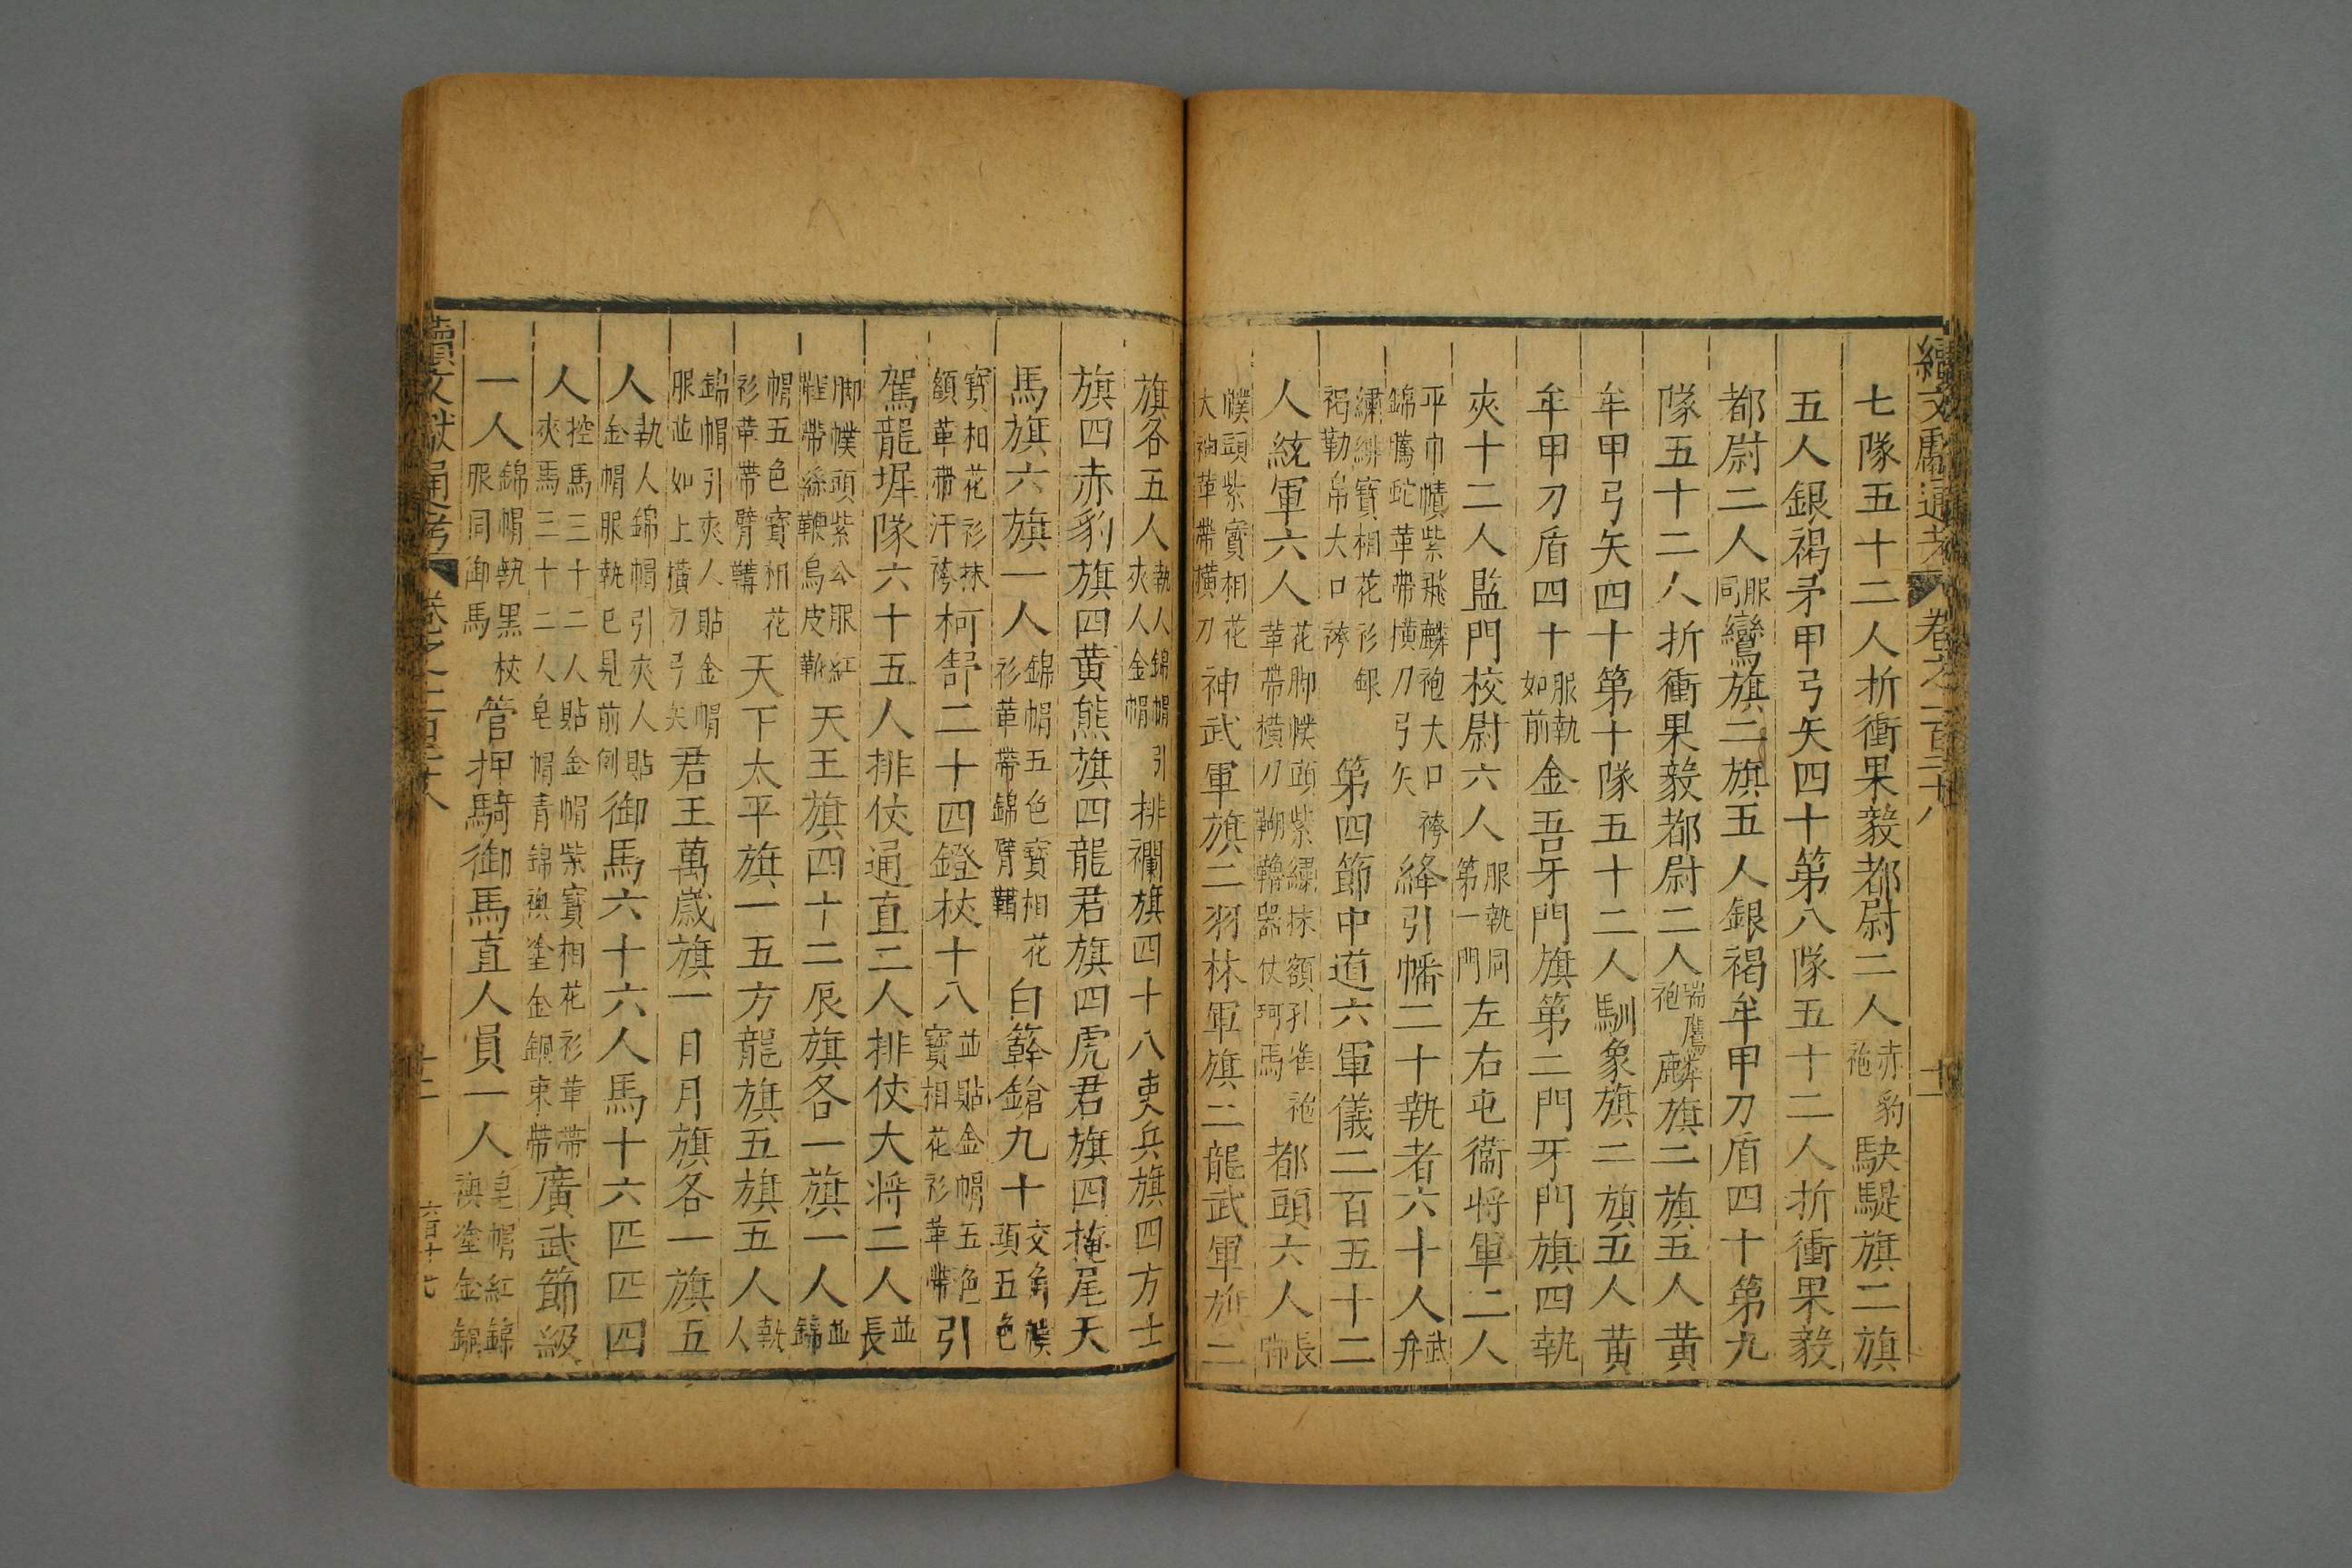 續文獻通考 卷之一百二十八 十一
七隊五十二人折衝果毅都尉二人赤豹袍駃騠旗二旗
五人銀褐矛甲弓矢四十第八隊五十二人折衝果毅
都尉二人服同鸞旗二旗五人銀褐牟甲刀盾四十第九
隊五十二人折衝果毅都尉二人瑞鷹袍麟旗二旗五人黄
牟甲弓矢四十第十隊五十二人馴象旗二旗五人黄
牟甲刀盾四十服執如前金吾牙門旗第二門牙門旗四執
夾十二人監門校尉六人服執同第一門左右屯衞將軍二人
平巾幘紫飛麟袍大口袴錦螣蛇革帶橫刀弓矢絳引幡二十執者六十人武弁
繡緋寳相花衫銀褐勒帛大口袴第四節中道六軍儀二百五十二
人統軍六人花脚幞頭紫繡抹額孔雀袍革帶橫刀鞬韇器仗珂馬都頭六人長脚
幞頭紫寳相花大袖革帶橫刀神武軍旗二羽林軍旗二龍武軍旗二
旗各五人執人錦帽引夾人金帽排襴旗四十八吏兵旗四方士
旗四赤豹旗四黄熊旗四龍君旗四虎君旗四掩尾天
馬旗六旗一人錦帽五色寳相花衫革帶錦臂韝白簳鎗九十交角幞頭五色
寳相花衫抹額革帶汗袴柯舒二十四鐙杖十八並貼金帽五色寳相花衫革帶引
駕龍墀隊六十五人排仗通直二人排仗大將二人並長
脚幞頭紫公服紅鞓帶絲鞭烏皮靴天王旗四十二辰旗各一旗一人並錦
帽五色寳相花衫革帶臂韝天下太平旗一五方龍旗五旗五人執人
錦帽引夾人貼金帽服並如上橫刀弓矢君王萬歲旗一日月旗各一旗五
人執人錦帽引夾人貼金帽服執已見前例御馬六十六人馬十六匹匹四
人控馬三十二人貼金帽紫寳相花衫革帶夾馬三十二人皂帽青錦襖塗金銅束帶廣武節級
一人錦帽執黑杖服同御馬管押騎御馬直人員一人皂帽紅錦襖塗金銅
續文獻通考 卷之一百二十八 十二 六百十七